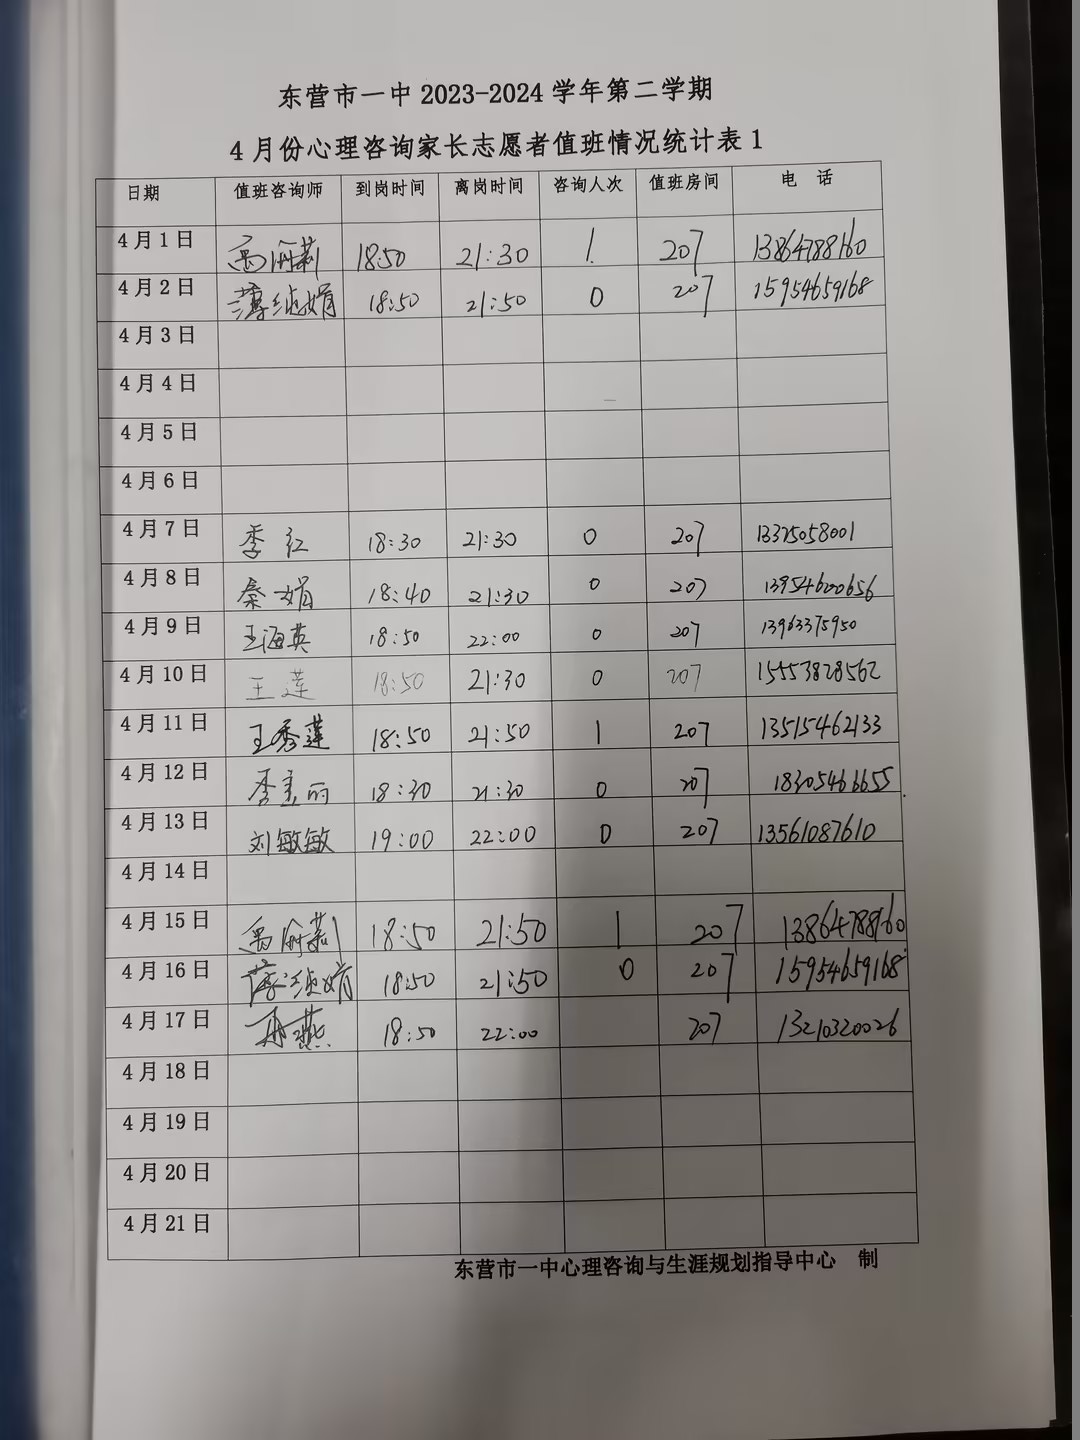 东营市一中 2023-2024 学年第二学期
4 月份心理咨询家长志愿者值班情况统计表 1
日期 值班咨询师 到岗时间 离岗时间 咨询人次 值班房间 电 话
4 月 1 日 18:50 21:30 1 207 13864788160
4 月 2 日 18:50 21:50 0 207 15954659168
4 月 3 日
4 月 4 日
4 月 5 日
4 月 6 日
4 月 7 日 季红 18:30 21:30 0 207 13325058001
4 月 8 日 秦娟 18:40 21:30 0 207 13954600656
4 月 9 日 王海英 18:50 22:00 0 207 13963375950
4 月 10 日 王莲 18:50 21:30 0 207 15553828562
4 月 11 日 王秀莲 18:50 21:50 1 207 13515462133
4 月 12 日 18:30 21:30 0 207 18305466655
4 月 13 日 刘敏敏 19:00 22:00 0 207 13561087610
4 月 14 日
4 月 15 日 18:50 21:50 1 207 13864788160
4 月 16 日 18:50 21:50 0 207 15954659168
4 月 17 日 18:50 22:00 207 13210320026
4 月 18 日
4 月 19 日
4 月 20 日
4 月 21 日
东营市一中心理咨询与生涯规划指导中心 制